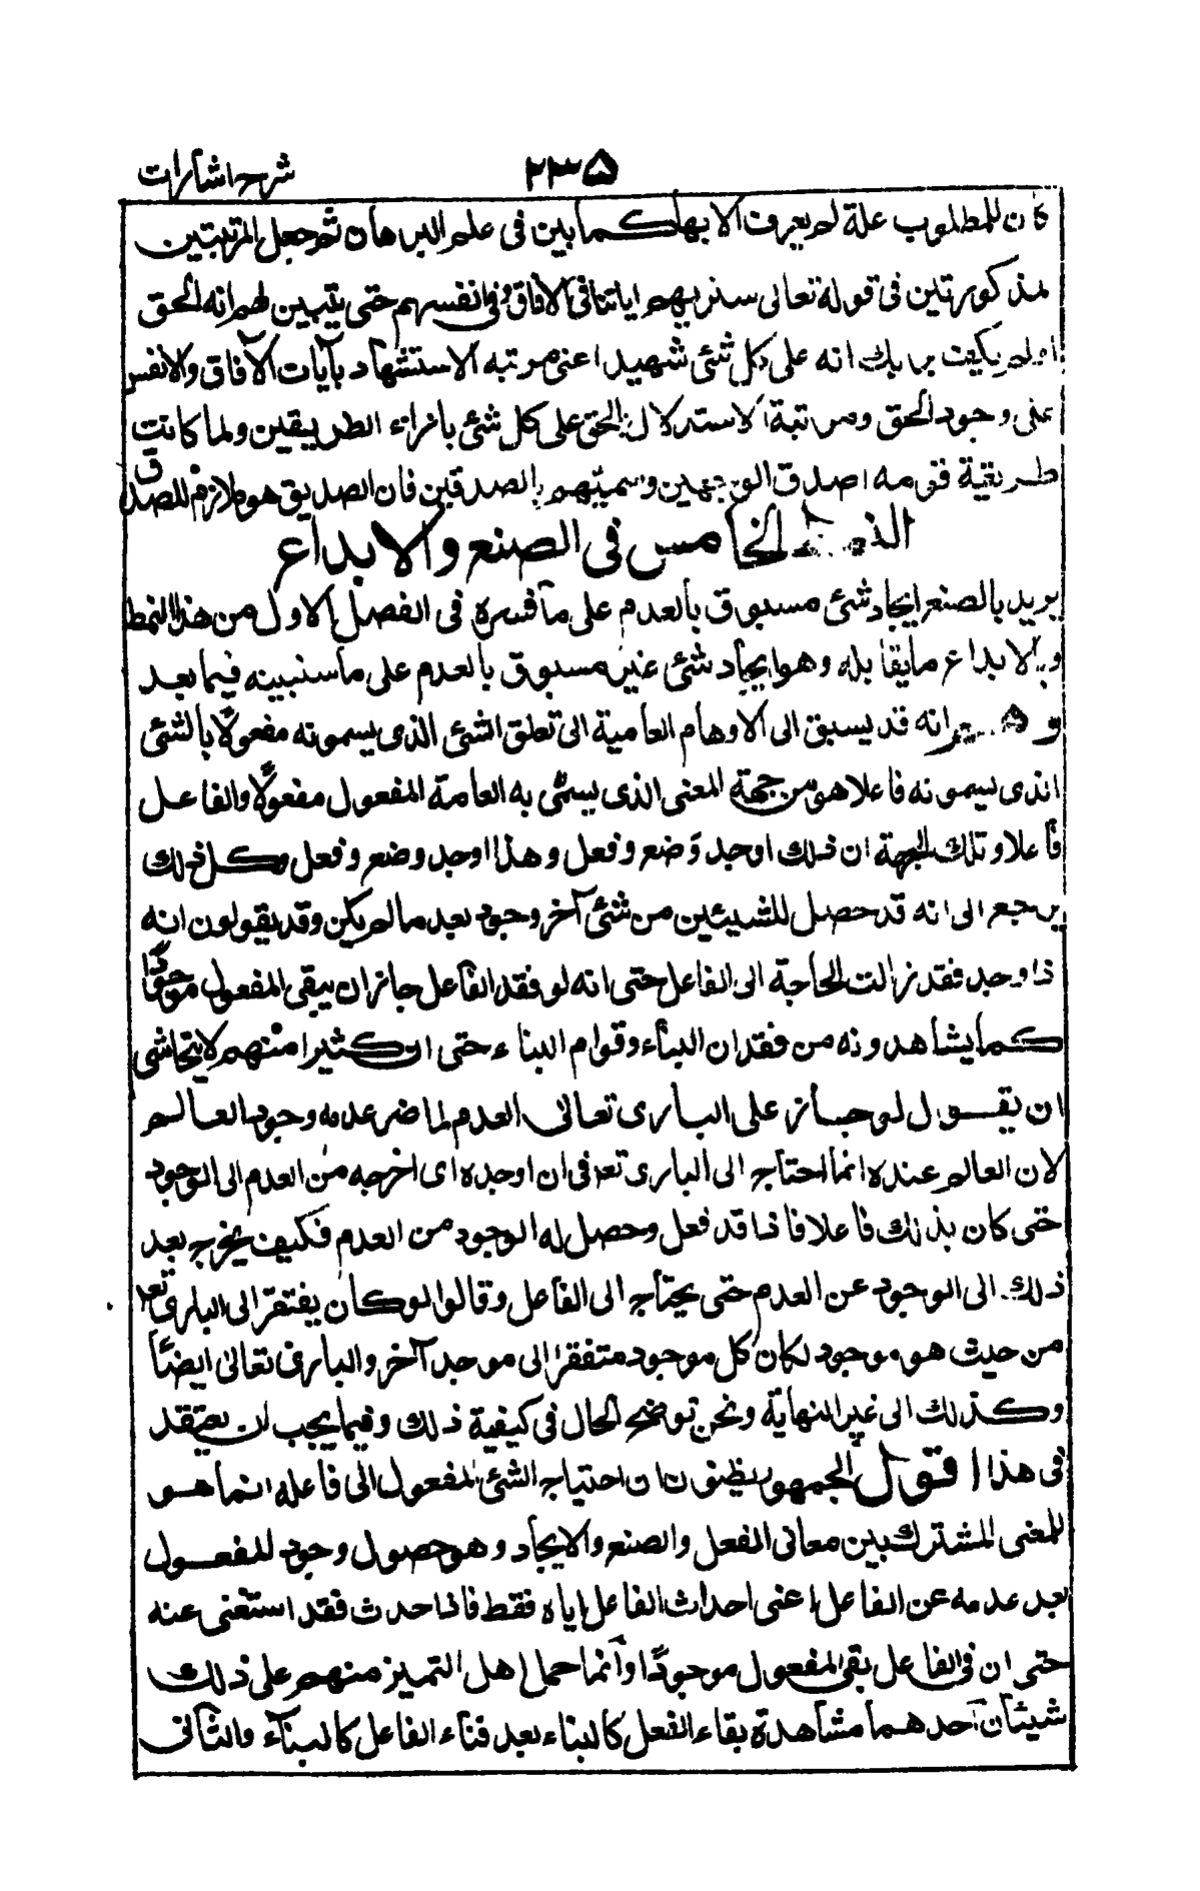 شرح اشارات ٢٣۵
كان للمطلوب علة لم يعرف الا بها كما بين فى علم البرهان ثم جعل المرتبتين
لمذكورتين فى قوله تعالى سنريهم اياتنا فى الافاق و فى انفسهم حتى يتبين لهم انه الحق
اولم يكف بربك انه على كل شئ شهيد اعنى مرتبه الاستشهاد بآيات الآفاق والانفس
على وجود الحق ومرتبة الاستدلال بالحق على كل شئ بازاء الطريقين ولما كانت
طريقية قومه اصدق الوجهين وسميتهم بالصدقين فان الصديق هو ملازم للصدق
النمط الخامس فى الصنع والابداع
يريد بالصنع ايجاد شئ مسبوق بالعدم على ما فسره فى الفصل الاول من هذا النمط
وبالابداع ما يقابله وهو ايجاد شئ غير مسبوق بالعدم على ما سنبينه فيما بعد
انه قد يسبق الى الاوهام العامية الى تعلق الشئ الذى يسمونه مفعولًا بالشئ
الذى يسمونه فاعلا هو من جهة المعنى الذى يسمّى به العامة المفعول مفعولًا والفاعل
فاعلا وتلك الجهة ان ذلك اوجد وَضع وفعل وهذا اوجد وضع وفعل وكل ذلك
يرجع الى انه قد حصل للشيئين من شئ آخر وجود بعد ما لم يكن وقد يقولون انه
ذا وجد فقد زالت الحاجة الى الفاعل حتى انه لو فقد الفاعل جاز ان يبقى المفعول موجودًا
كما يشاهدونه من فقدان البنّاء وقوام البناء حتى ان كثيرا منهم لا يتحاشى
ان يقول لو جاز على البارى تعالى العدم لما ضر عدمه وجود العالم
لان العالم عنده انما احتاج الى البارى تعه فى ان اوجده اى اخرجه من العدم الى الوجود
حتى كان بذلك فاعلا فاذا قد فعل وحصل له الوجود من العدم فكيف يخرج بعد
ذلك الى الوجود عن العدم حتى يحتاج الى الفاعل وقالوا لو كان يفتقر الى البارى تعه
من حيث هو موجود لكان كل موجود متفقرا الى موجد آخر والبارى تعالى ايضًا
وكذلك الى غير النهاية ونحن نوضح الحال فى كيفية ذلك وفيما يجب ان يعتقد
فى هذا اقول الجمهور يظنون ان احتياج الشئ المفعول الى فاعله انما هو
للمعنى المشترك بين معانى الفعل والصنع والايجاد وهو حصول وجود للمفعول
بعد عدمه عن الفاعل اعنى احداث الفاعل اياه فقط فاذا حدث فقد استغنى عنه
حتى ان فنى الفاعل بقى المفعول موجودًا وانما حمل اهل التميز منهم على ذلك
شيئان احدهما مشاهدة بقاء الفعل كالبناء بعد فناء الفاعل كالبنّاء والثانى